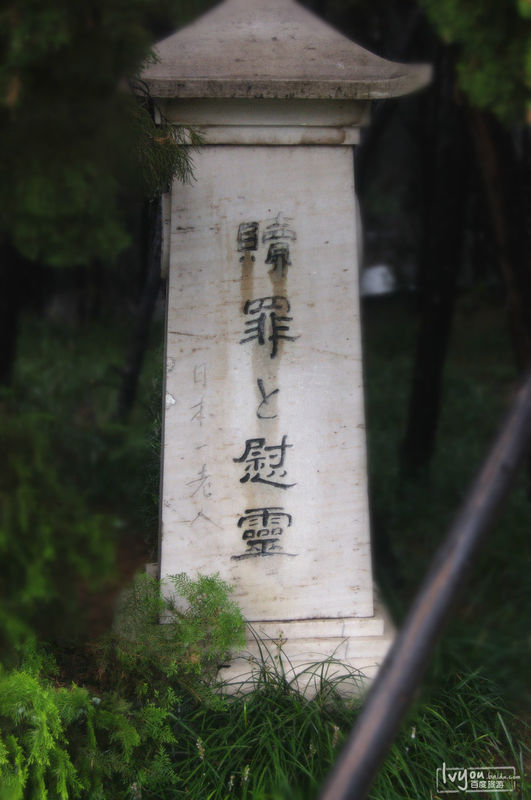 贖罪と慰靈
日本一老人
lvyou.baidu.com
百度旅游